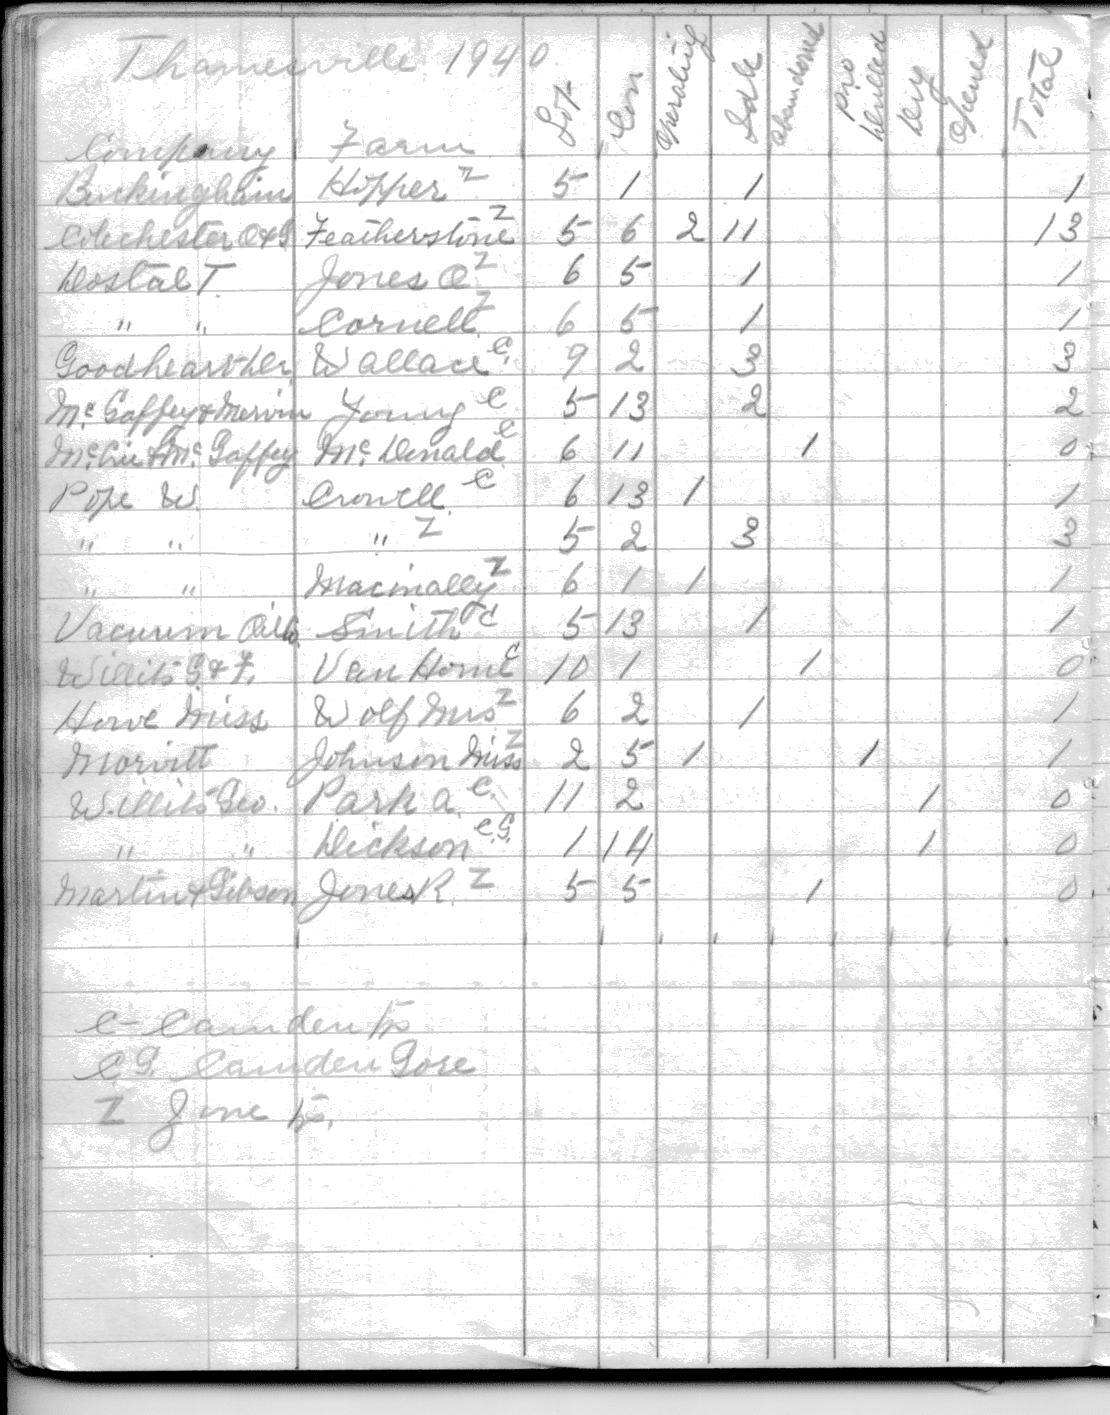 Thamesville 1940
Company Farm Lot Con Operating Idle Abandoned Pro Drilled Dry Opened Total
Buckingham Hopper Z 5 1 1 1
Colchester O&G Featherstone Z 5 6 2 11 13
Dostal T Jones O Z 6 5 1 1
" " Cornell Z 6 5 1 1
Wallace C. 9 2 3 3
Mc Gaffey & Mervin Young C 5 13 2 2
& Mc Gaffey Mc Donald C 6 11 1 0
Pope W. Crowell C 6 13 1 1
" " " Z 5 2 3 3
" " Macinally Z 6 1 1 1
Vacuum Oil Co. Smith C 5 13 1 1
Willits G & F. Van Horne C 10 1 1 0
Howe Miss Wolf Mrs Z 6 2 1 1
Morvitt Johnson Miss Z 2 5 1 1 1
Willits Geo. Park A. C. 11 2 1 0
" " Dickson C.G. 1 14 1 0
Martin & Gibson Jones R. Z 5 5 1 0
C - Camden Tp
C.G. Camden Gore
Z Zone Tp.